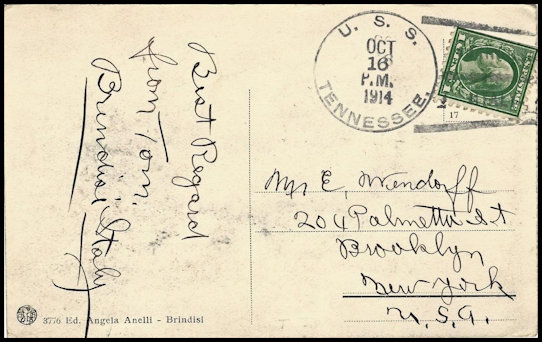 Best Regard
from Tom.
Brindisi Italy
U. S. S. TENNESSEE.
OCT
16
P.M.
1914
17
Mr E. Wendorff
204 Palmetta St
Brooklyn
New York
U.S.A.
3776 Ed. Angela Anelli - Brindisi